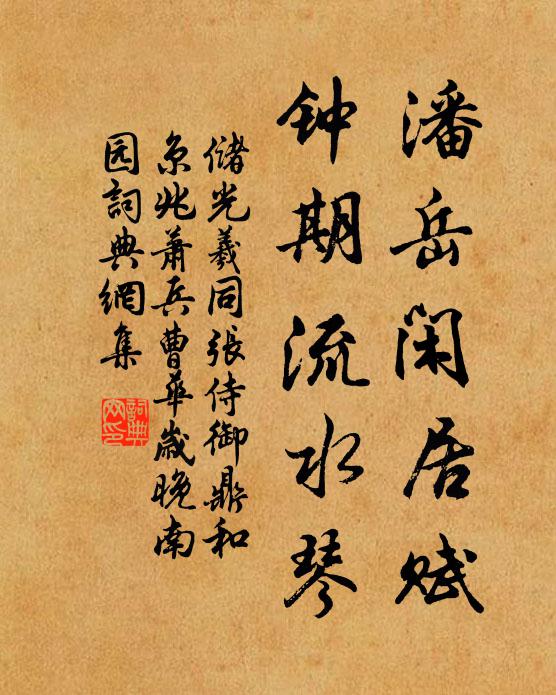 潘岳闲居赋
钟期流水琴
储光羲同张侍御鼎和
京兆萧兵曹华岁晚南
园詞典網集
詞典
网印